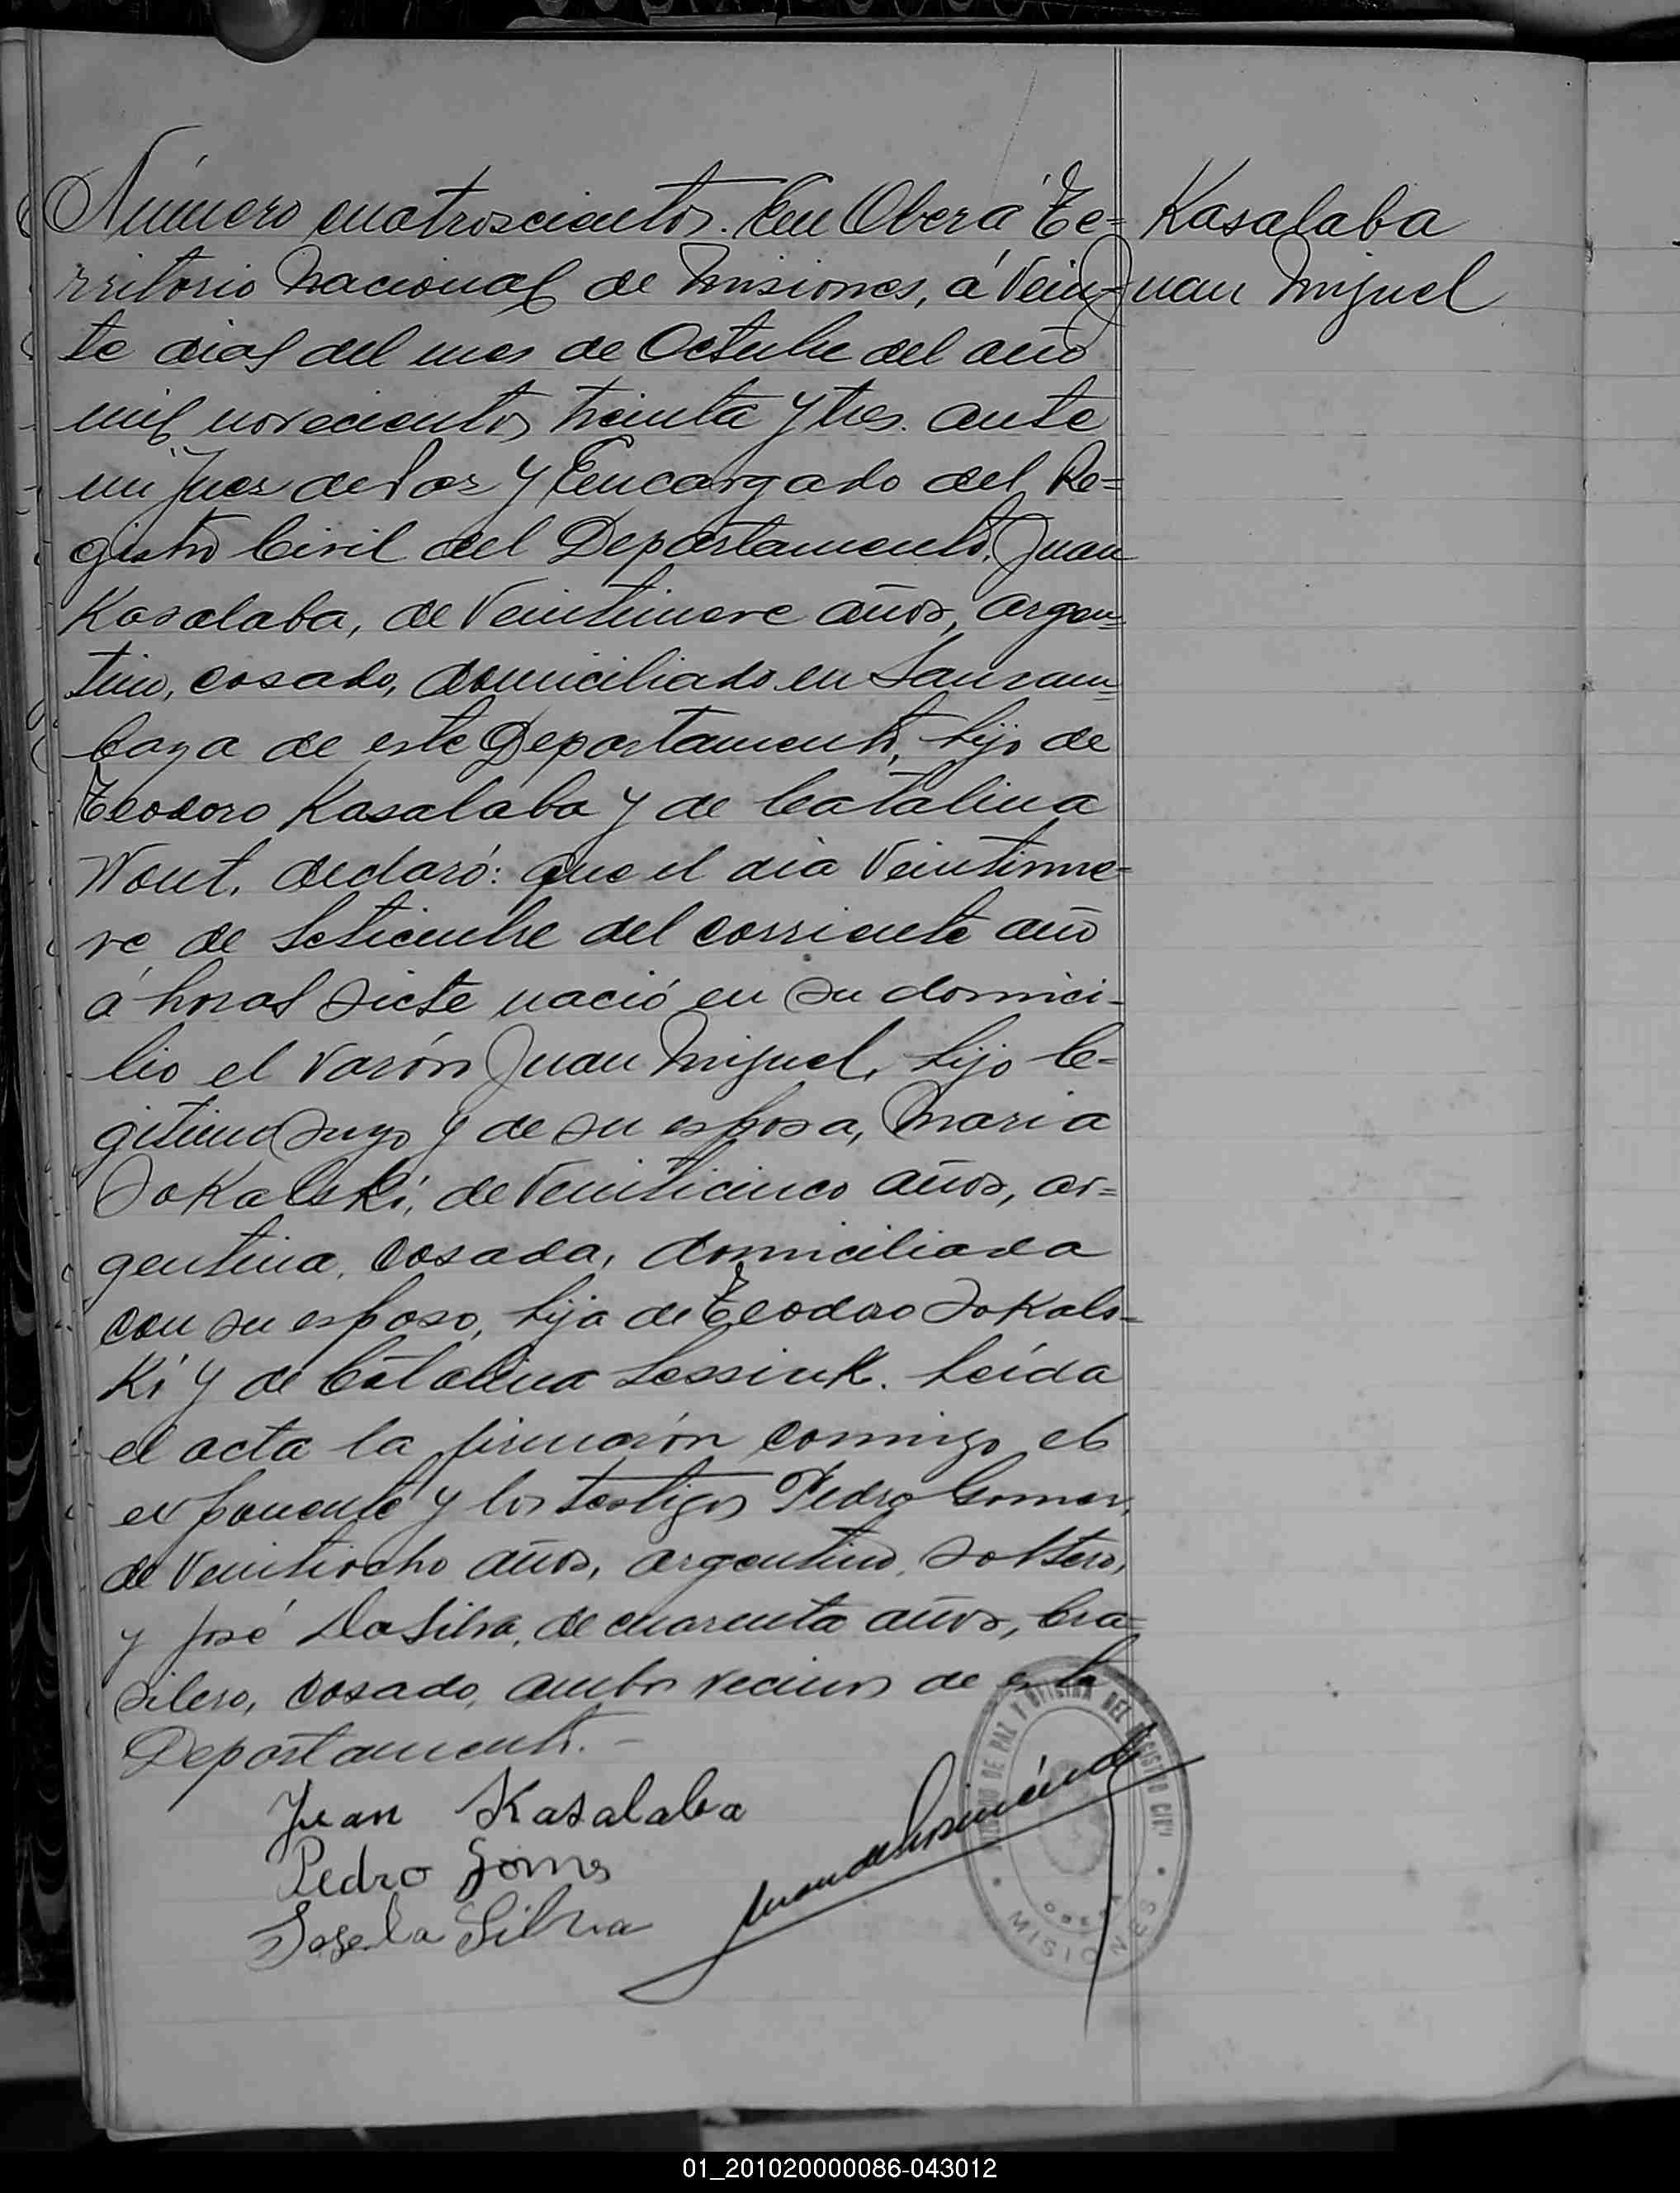 Número cuatroscientos. En Oberá Te=
rritorio Nacional de Misiones, á Vein-
te dias del mes de Octubre del año
mil novecientos treinta y tres. ante
mi Juez de Paz y Encargado del Re=
gistro Civil del Departamento, Juan
Kasalaba, de Veintinueve años, argen=
tino, casado, domiciliado en
de este Departamento, hijo de
Teodoro Kasalaba y de Catalina
declaró: que el dia Veintinue-
ve de Setiembre del corriente año
á horas siete nació en su domici-
lio el varón Juan Miguel, hijo le-
gitimo suyo y de su esposa, Maria
Sokalski, de Veinticinco años, ar=
gentina, casada, domiciliada
con su esposo, hija de Teodoro Sokals-
ki y de Catalina Leída
el acta la firmarón conmigo el
exponente y los testigos Pedro Gomes,
de Veintiocho años, argentino, soltero,
y José DaSilva, de cuarenta años, bra=
silero, casado, ambos vecinos de este
Departamento.-
Kasalaba
Juan Miguel
Juan Kasalaba
Pedro Gomes
Jose da Silva
JUZGADO DE PAZ Y OFICINA DEL REGISTRO CIVIL
OBERA
MISIONES
01_201020000086-043012